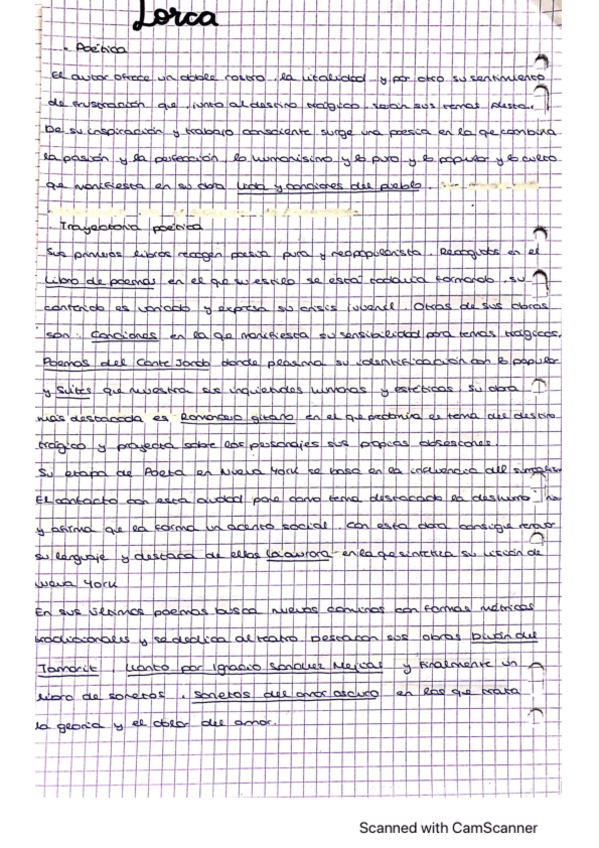 Lorca
- Poética
El autor ofrece un doble rostro, la vitalidad y por otro su sentimiento
de frustración que, junto al destino trágico, serán sus temas
De su inspiración y trabajo consciente surge una poesía en la que combina
la pasión y la perfección, lo humanismo y lo puro y lo popular y lo culto
que manifiesta en su obra y canciones del pueblo.
Trayectoria poética
Sus primeros libros recogen poesía pura y neopopularista. Recogidos en el
Libro de poemas en el que su estilo se está todavía formando, su
contenido es variado y expresa su crisis juvenil. Otras de sus obras
son: Canciones en la que manifiesta su sensibilidad para temas trágicos,
Poemas del Cante Jondo donde plasma su identificación con lo popular
y Suites que muestra sus inquietudes humanas y estéticas. Su obra
más destacada es Romancero gitano en el que predomina el tema del destino
trágico y proyecta sobre los personajes sus propias obsesiones.
Su etapa de Poeta en Nueva York se basa en la influencia del
El contacto con esta ciudad pone como tema destacado la
y afirma que la forma un acento social. Con esta obra consigue
su lenguaje y destaca de ellos La aurora en la que sintetiza su visión de
Nueva York
En sus últimos poemas busca nuevos caminos con formas métricas
tradicionales y se dedica al teatro. Destacan sus obras Diván del
Tamarit, Llanto por Ignacio Sánchez Mejías y finalmente un
libro de sonetos, Sonetos del amor oscuro en los que trata
la gloria y el dolor del amor.
Scanned with CamScanner